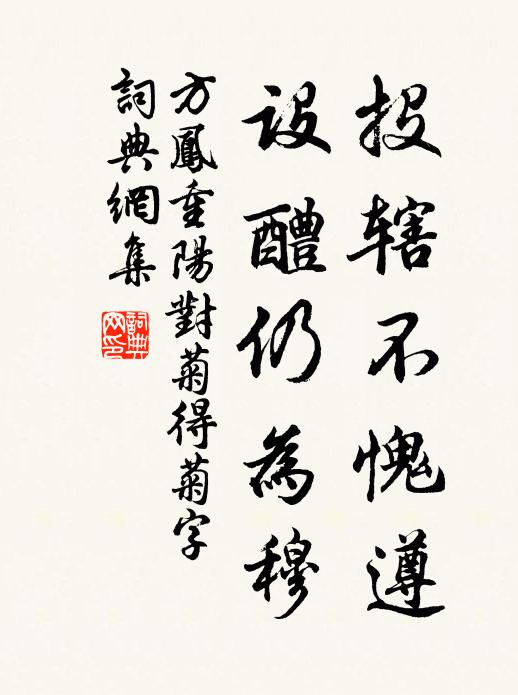 投辖不愧遵
設醴仍為穆
方鳳重陽對菊得菊字
詞典網集
詞典网印